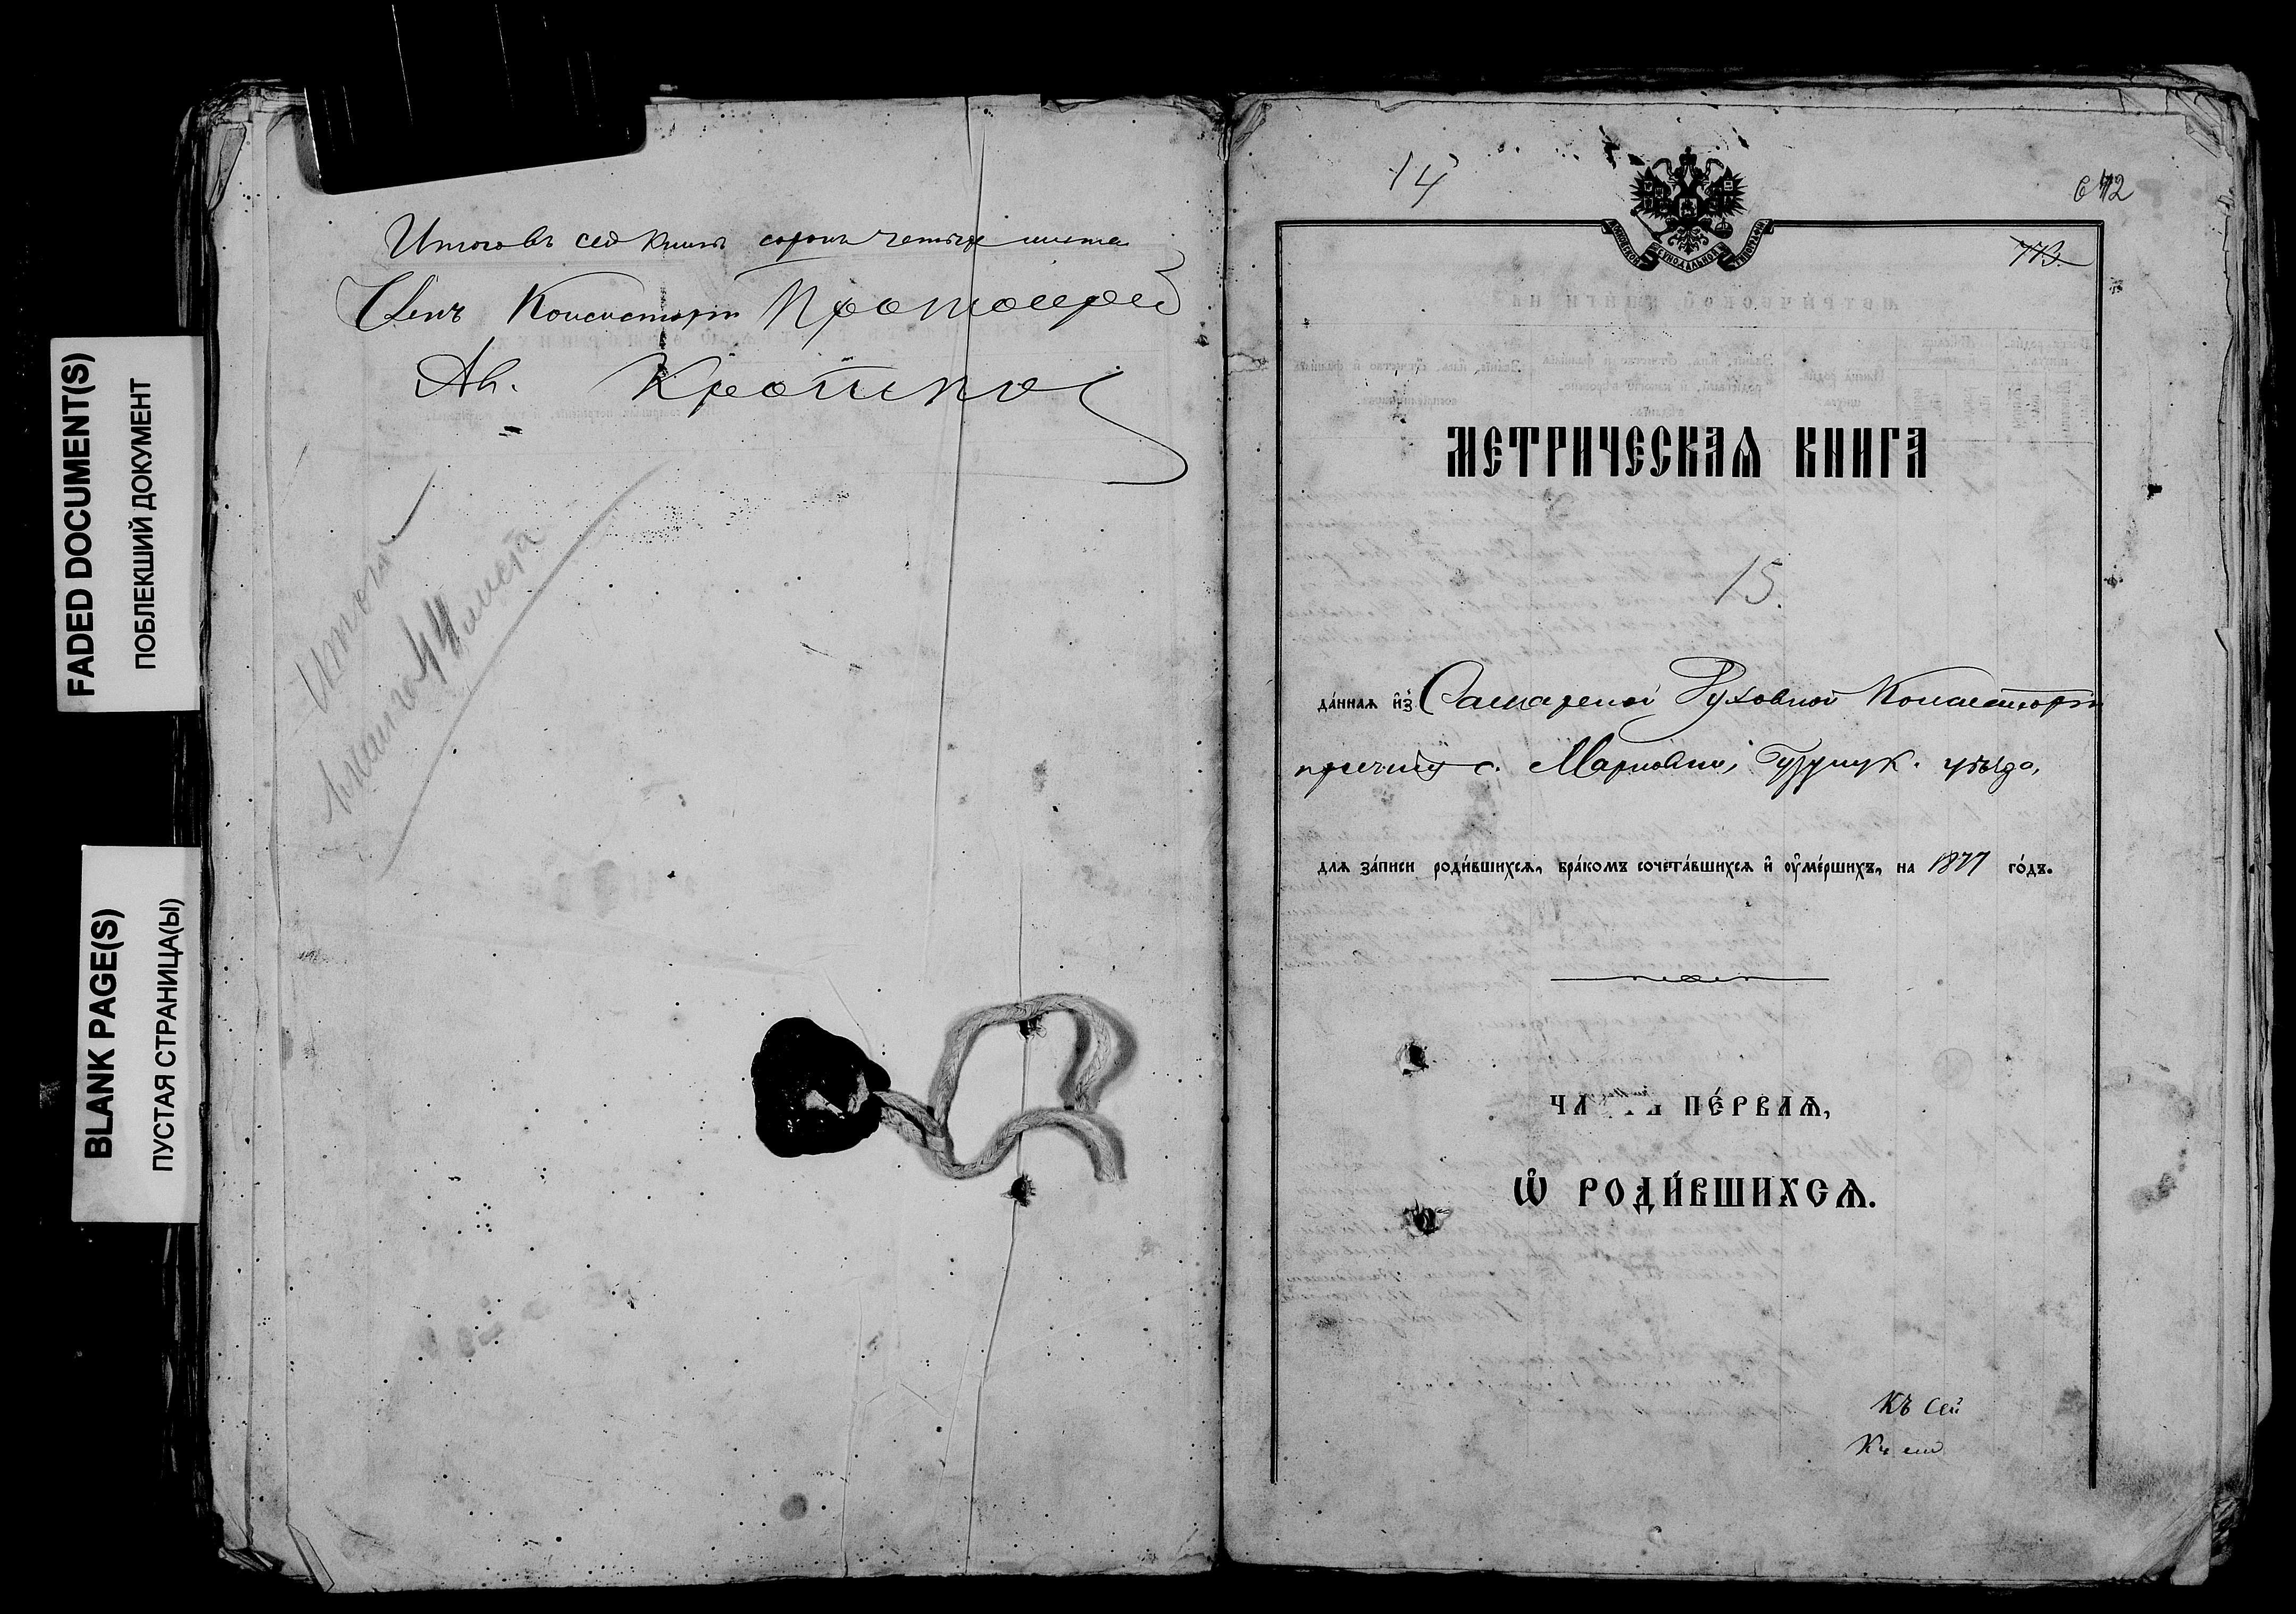 FADED DOCUMENT(S)
ПОБЛЕКШИЙ ДОКУМЕНТ
BLANK PAGE(S)
ПУСТАЯ СТРАНИЦА(Ы)
Итого въ сей книгѣ сорокъ четыре листа
Членъ Консисторіи Протоіерей
Ап.
Итого
44 листа
14
642
773.
МОСКОВСКОЙ СѴНОДАЛЬНОЙ ТИПОГРАФІИ
МЕТРИЧЕСКАѦ КНИГА
15.
да́ннаѧ и҆з̾ Самарской Духовной Консисторіи
причту с. Марковки, Бузулук. уѣзда,
длѧ за́писи роди́вшихсѧ, бра́комъ сочета́вшихсѧ и҆ ᲂу҆ме́ршихъ, на 1877 го́дъ.
ЧА ПЕ́РВАѦ,
Ѡ҆ РОДИ́ВШИХСѦ.
Къ сей